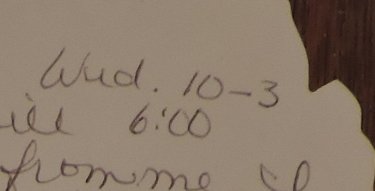 Wed. 10-3
ill 6:00
from me